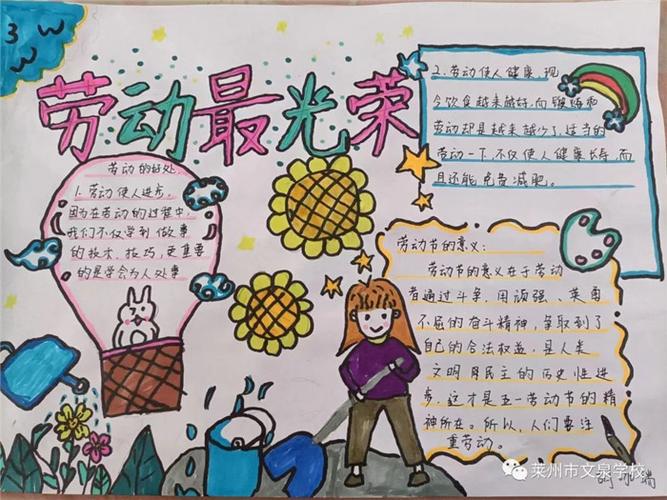 3
W
劳动最光荣
劳动的好处
1.劳动使人进步。
因为在劳动的过程中,
我们不仅学到做事
的技术、技巧,更重要
的是学会为人处事
2.劳动使人健康,现
今饮食越来越好,而锻炼和
劳动却是越来越少了,适当的
劳动一下,不仅使人健康长寿,而
且还能免费减肥。
劳动节的意义:
劳动节的意义在于劳动
者通过斗争,用顽强、英勇
不屈的奋斗精神,争取到了
自己的合法权益,是人类
文明民主的历史性进
步,这才是五一劳动节的精
神所在。所以,人们要注
重劳动。
莱州市文泉学校